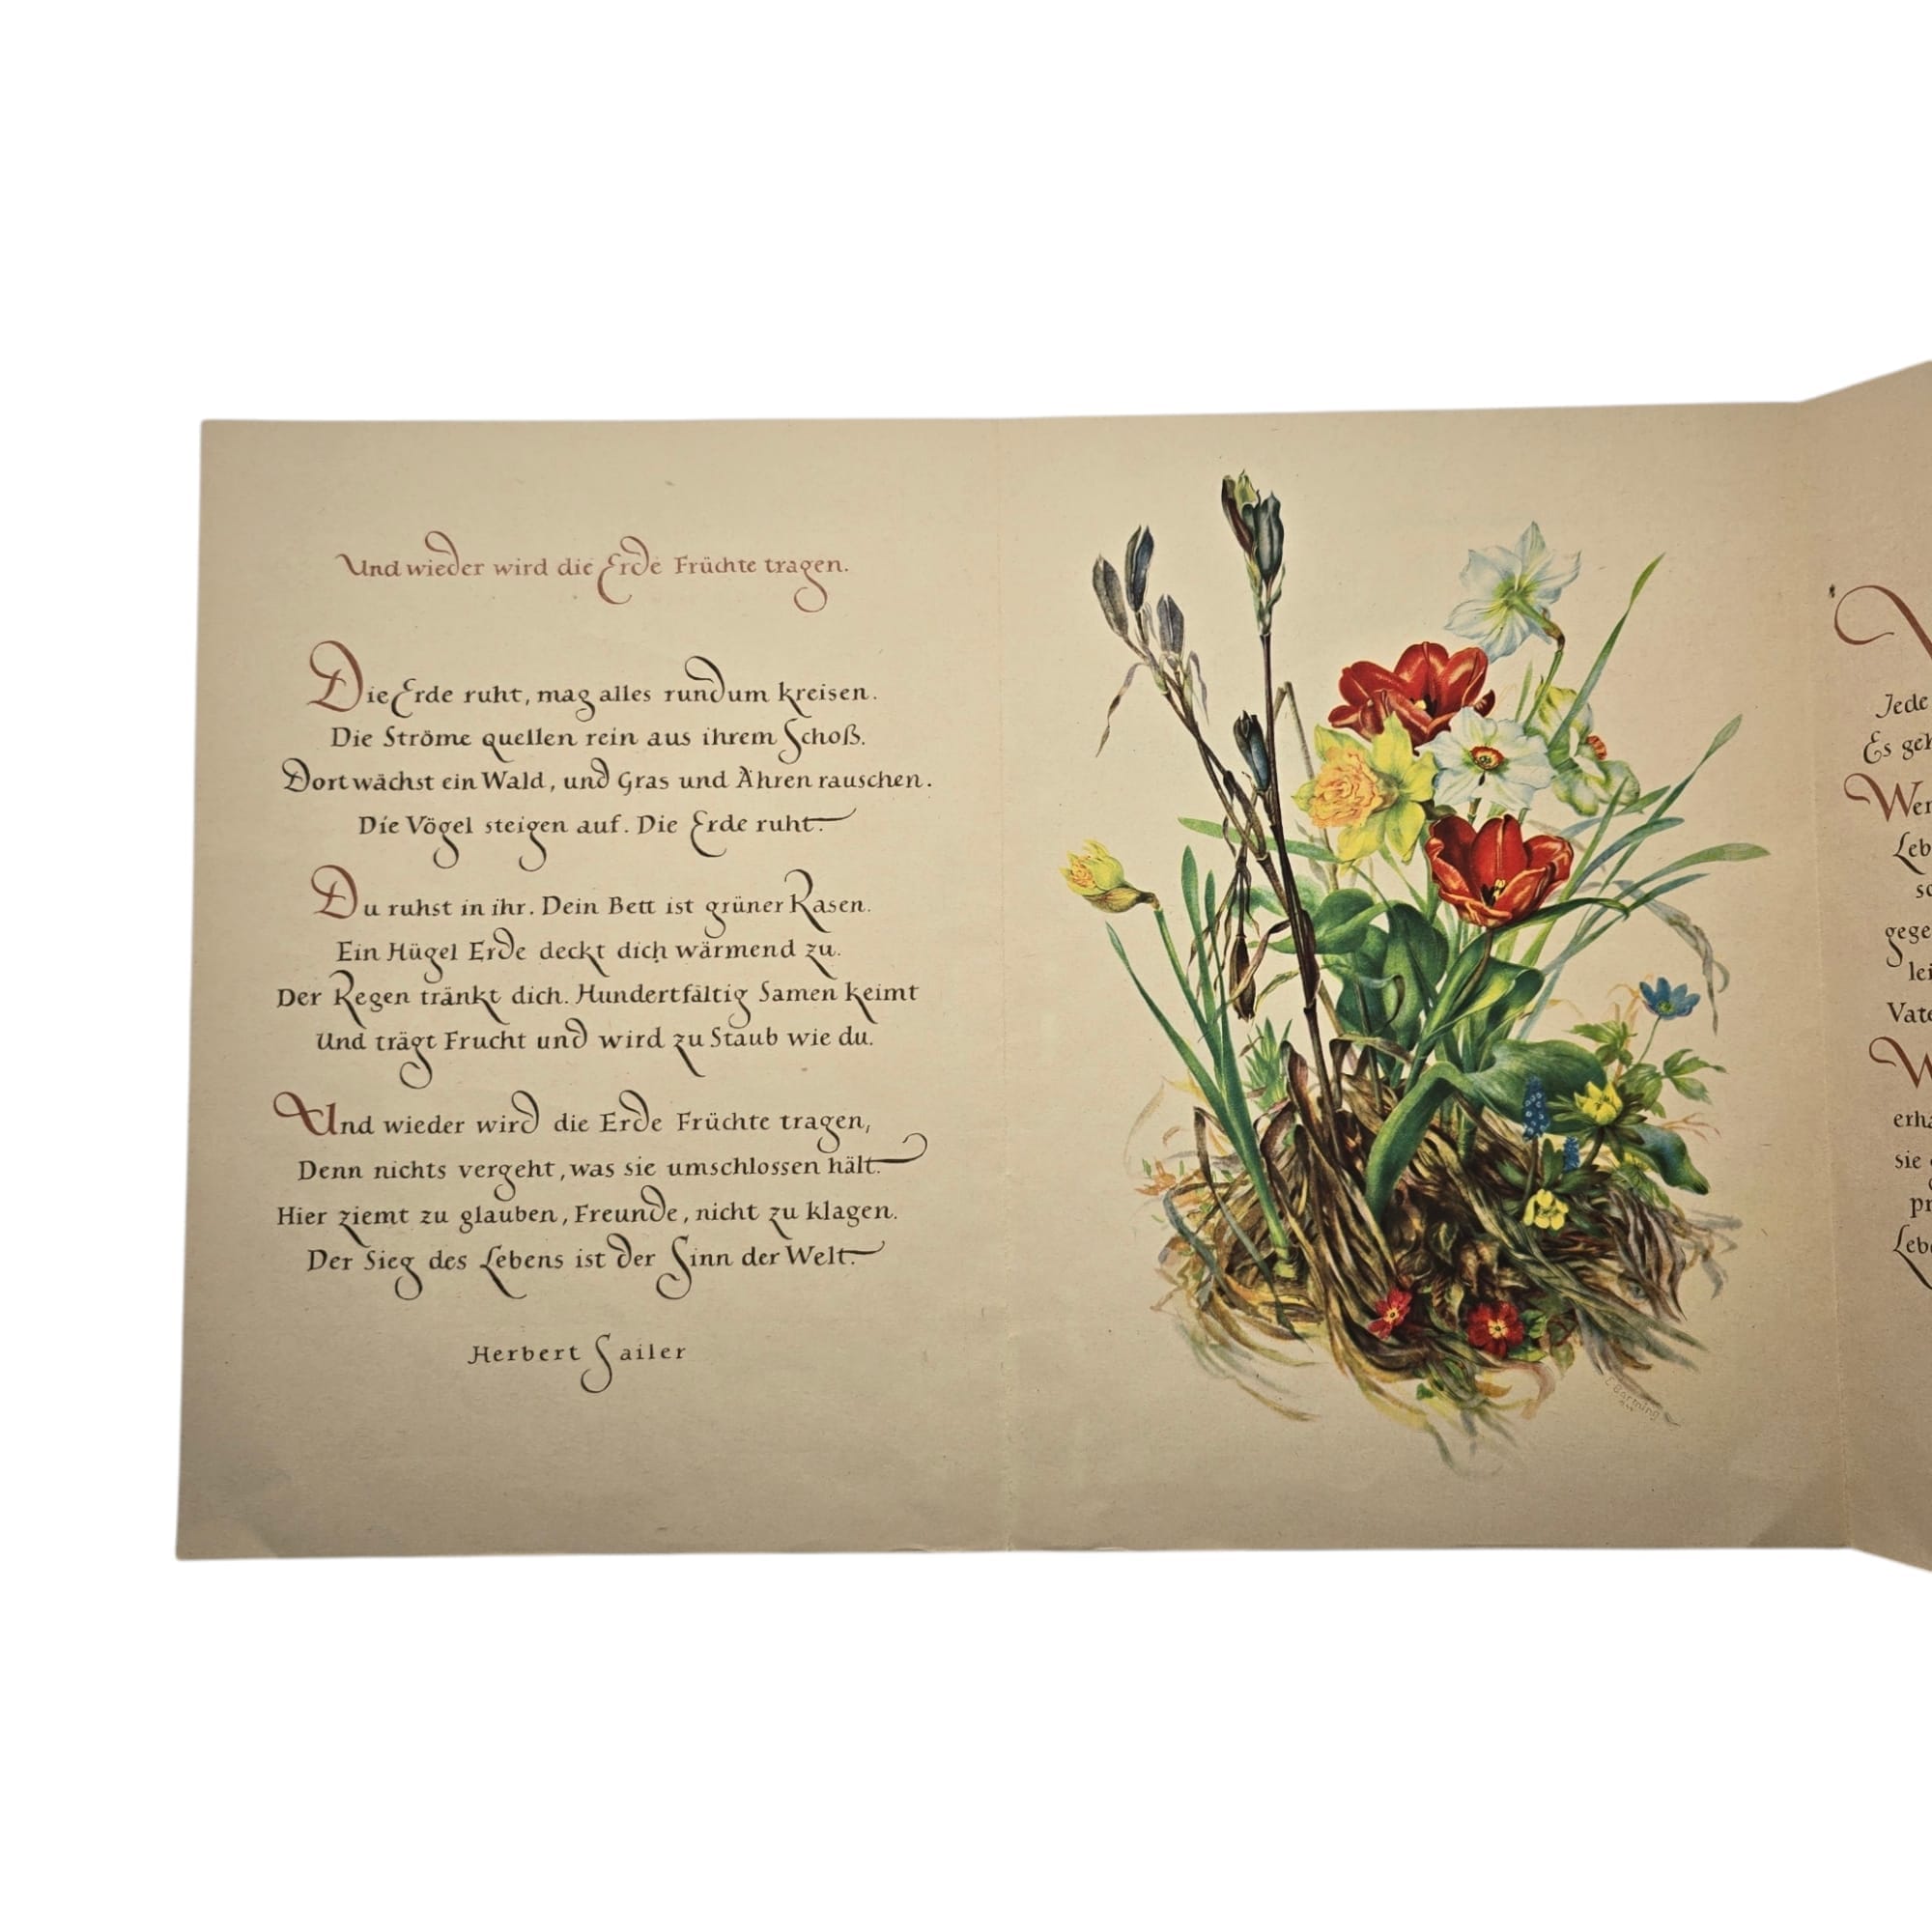 Und wieder wird die Erde Früchte tragen.
Die Erde ruht, mag alles rundum kreisen.
Die Ströme quellen rein aus ihrem Schoß.
Dort wächst ein Wald, und Gras und Ähren rauschen.
Die Vögel steigen auf. Die Erde ruht.
Du ruhst in ihr. Dein Bett ist grüner Rasen.
Ein Hügel Erde deckt dich wärmend zu.
Der Regen tränkt dich. Hundertfältig Samen keimt
Und trägt Frucht und wird zu Staub wie du.
Und wieder wird die Erde Früchte tragen,
Denn nichts vergeht, was sie umschlossen hält.
Hier ziemt zu glauben, Freunde, nicht zu klagen.
Der Sieg des Lebens ist der Sinn der Welt.
Herbert Sailer
Jede
Es